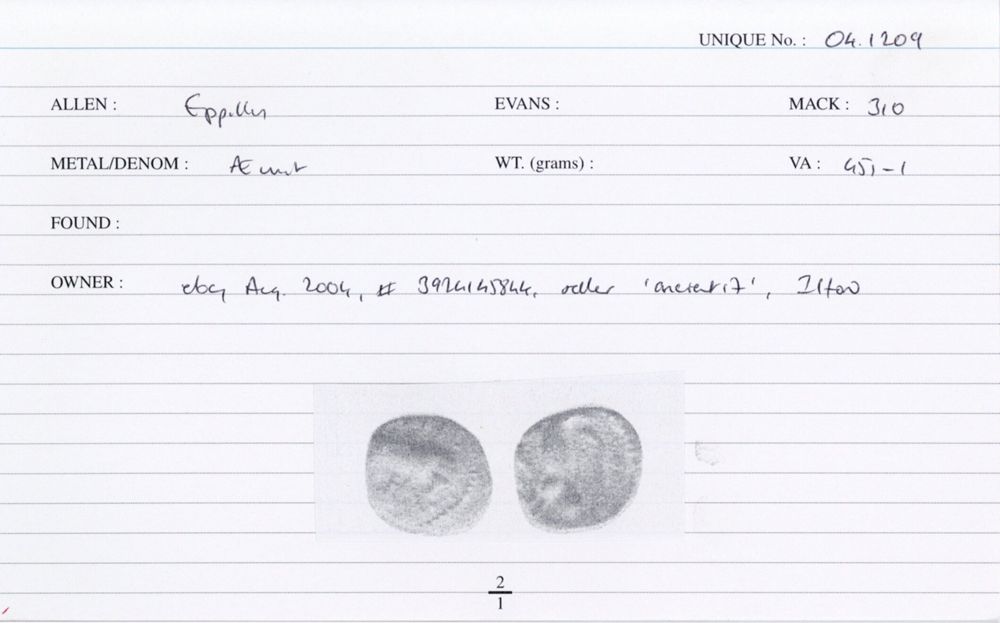 UNIQUE No. : 04.1209
ALLEN : Eppillus EVANS : MACK : 310
METAL/DENOM : Æ unit WT. (grams) : VA : 451-1
FOUND :
OWNER : ebay Aug. 2004, # 3924145844, seller 'ancient17',
2
1